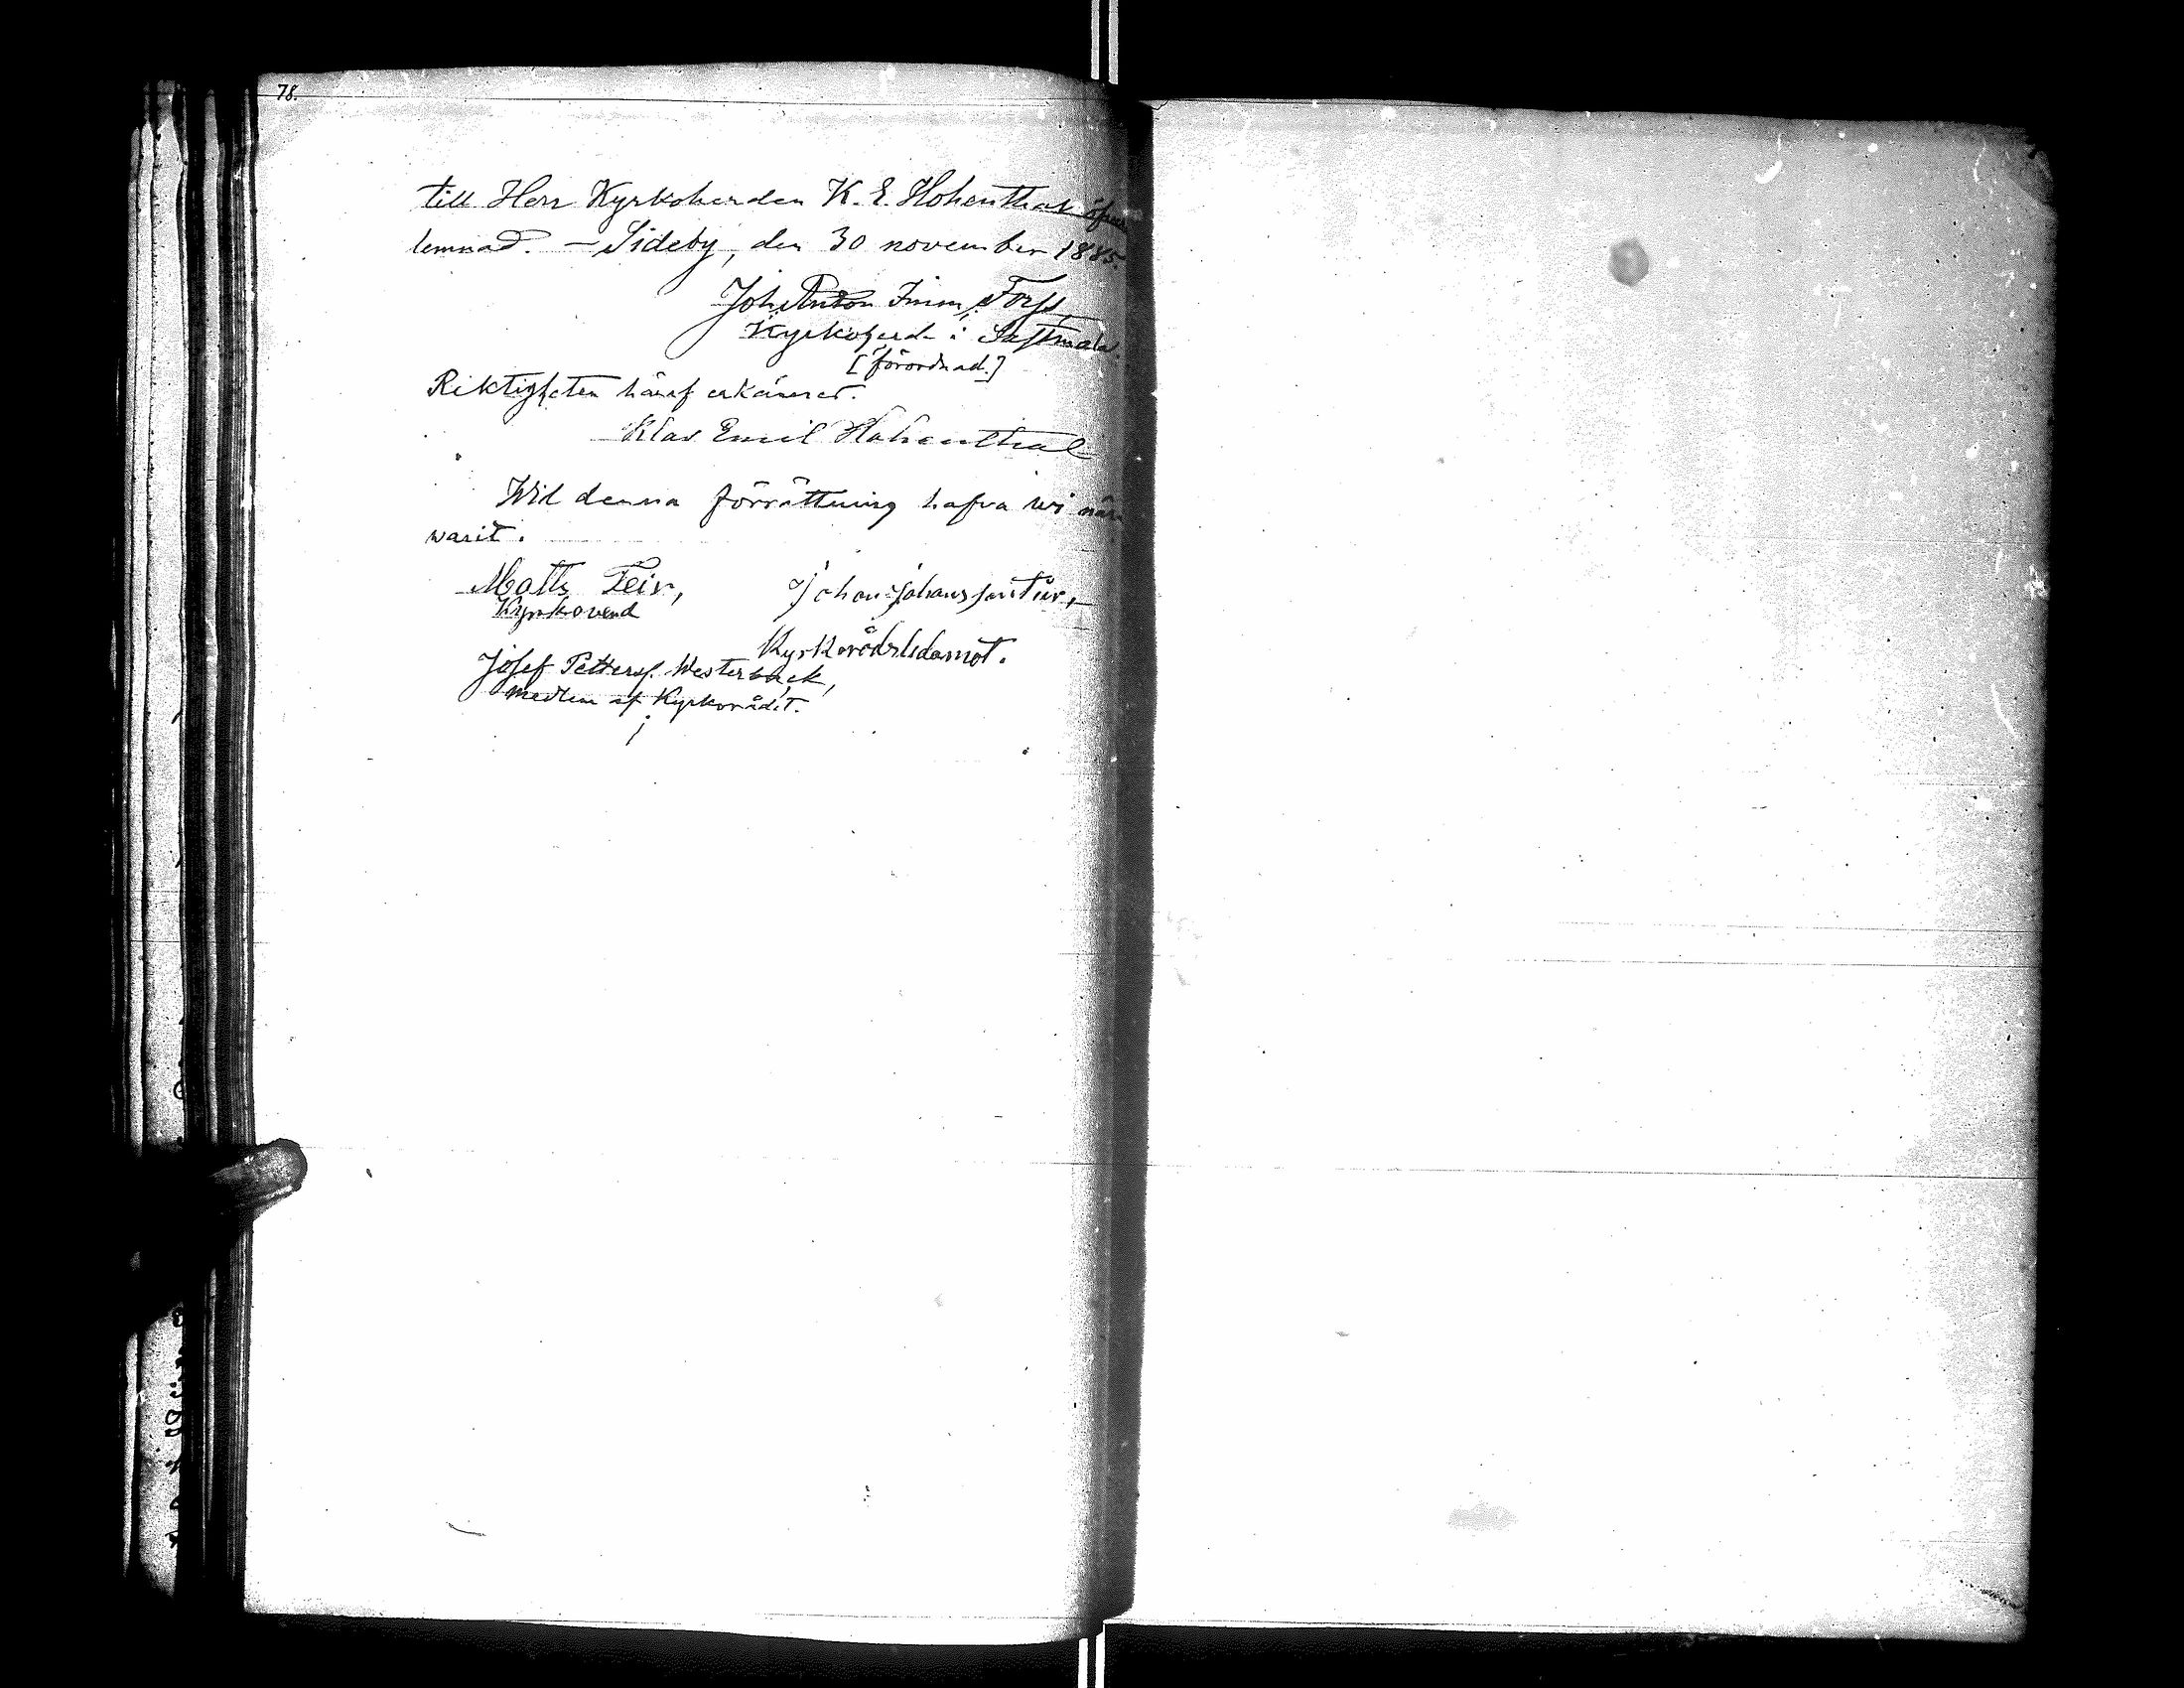 78.
till Herr Kyrkoherden K. E. Hohenthal öfver
lemnad. — Sideby, den 30 november 1885.
Joh. Anton Imm. Forss,
Kyrkoherde i Sastmola.
[förordnad.]
Riktigheten häraf erkännes.
Klas Emil Hohenthal
Wid denna förrättning hafva wi när
warit.
Matts Teir,
Kyrkovärd
Johan Johansson
Kyrkorådsledamot.
Josef Petterss. Westerback,
Medlem af Kyrkorådet.